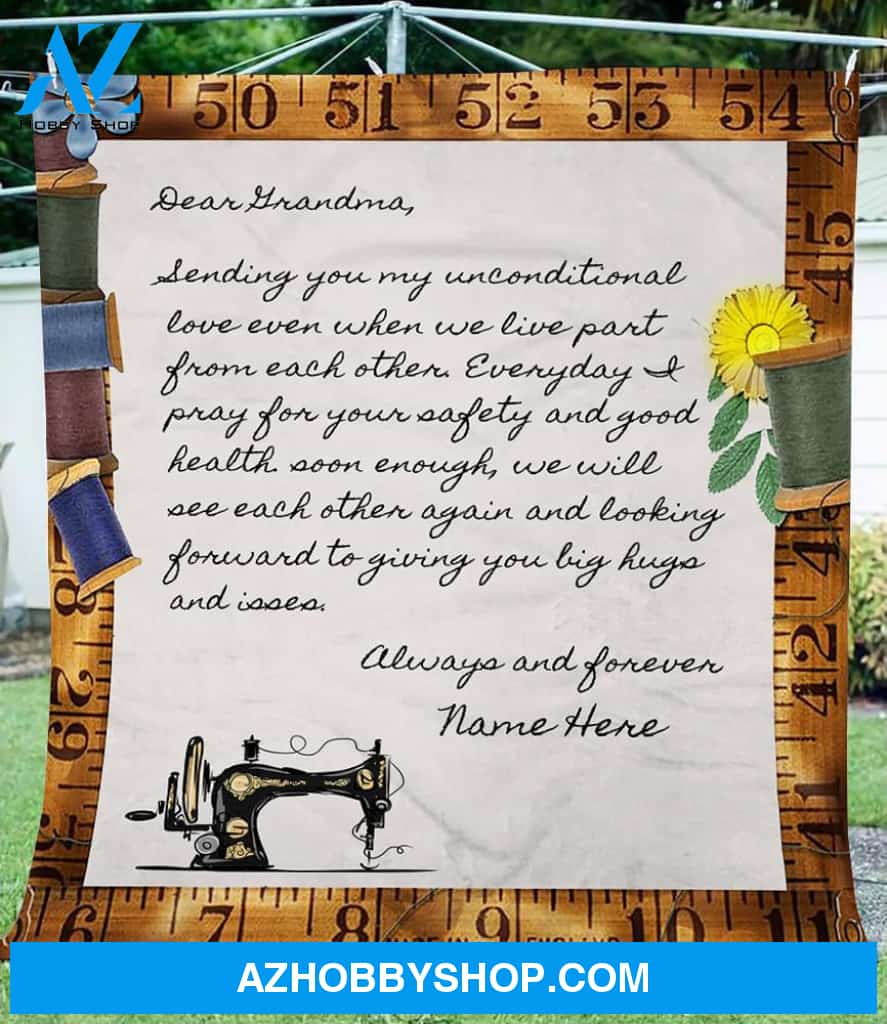 AZ
HOBBY SHOP
50 51 52 53 54
Dear Grandma,
Sending you my unconditional
love even when we live part
from each other. Everyday I
pray for your safety and good
health. soon enough, we will
see each other again and looking
forward to giving you big hugs
and isses.
Always and forever
Name Here
45
42
41
6 7 8 9 10 11
MADE IN ENGLAND
AZHOBBYSHOP.COM